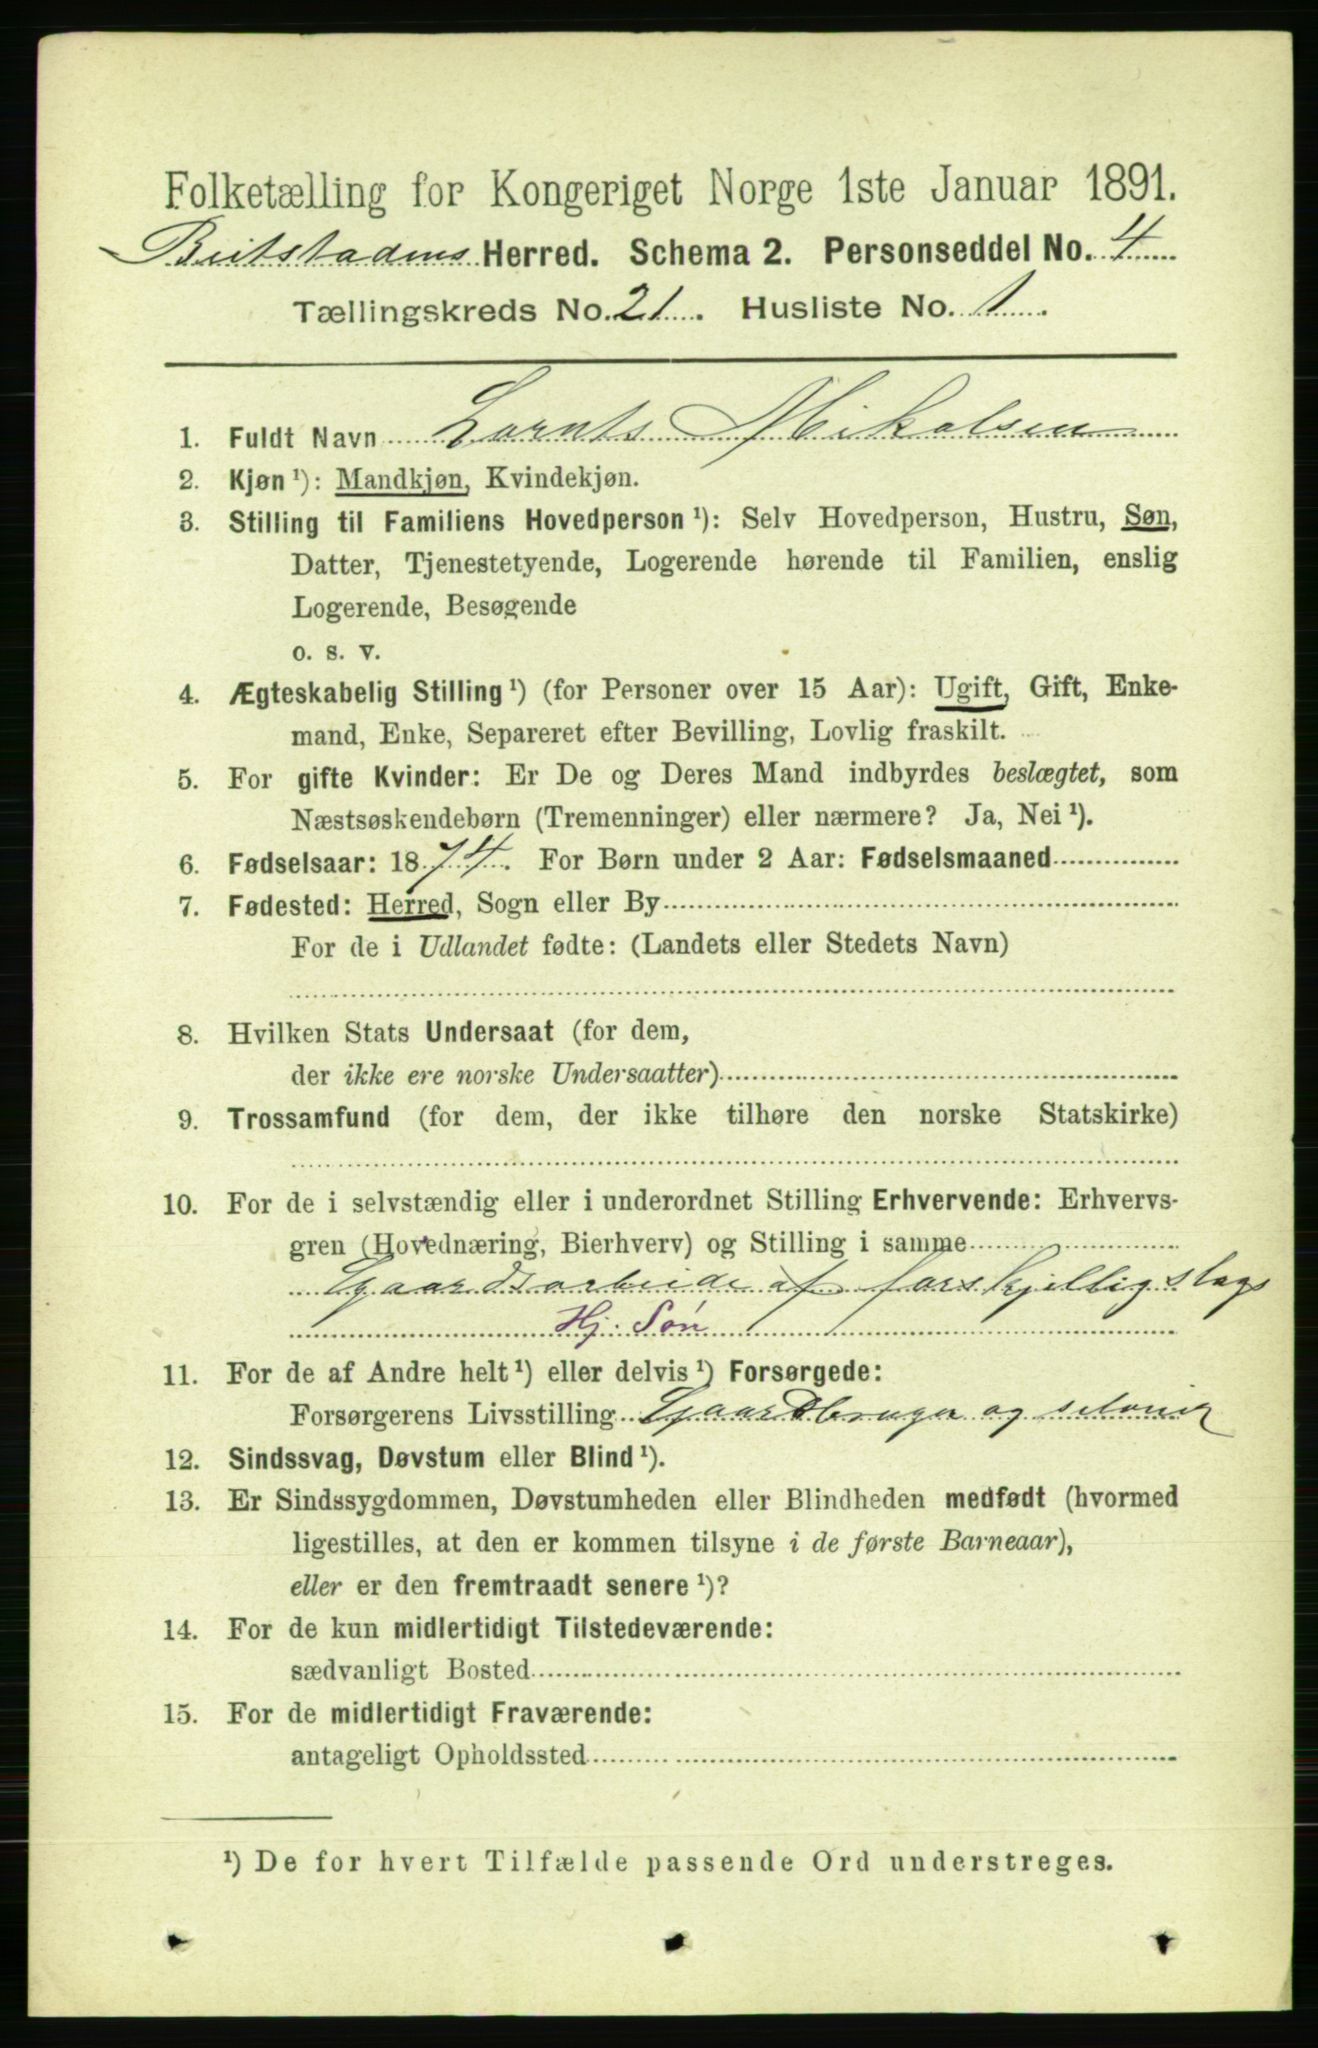 Folketælling for Kongeriget Norge 1ste Januar 1891.
Beitstadens Herred. Schema 2. Personseddel No. 4
Tællingskreds No. 21. Husliste No. 1.
1. Fuldt Navn Lornts Mikalsen
2. Kjøn ¹): Mandkjøn, Kvindekjøn.
3. Stilling til Familiens Hovedperson ¹): Selv Hovedperson, Hustru, Søn,
Datter, Tjenestetyende, Logerende hørende til Familien, enslig
Logerende, Besøgende
o. s. v.
4. Ægteskabelig Stilling ¹) (for Personer over 15 Aar): Ugift, Gift, Enke-
mand, Enke, Separeret efter Bevilling, Lovlig fraskilt.
5. For gifte Kvinder: Er De og Deres Mand indbyrdes beslægtet, som
Næstsøskendebørn (Tremenninger) eller nærmere? Ja, Nei ¹).
6. Fødselsaar: 1874. For Børn under 2 Aar: Fødselsmaaned
7. Fødested: Herred, Sogn eller By
For de i Udlandet fødte: (Landets eller Stedets Navn)
8. Hvilken Stats Undersaat (for dem,
der ikke ere norske Undersaatter)
9. Trossamfund (for dem, der ikke tilhøre den norske Statskirke)
10. For de i selvstændig eller i underordnet Stilling Erhvervende: Erhvervs-
gren (Hovednæring, Bierhverv) og Stilling i samme
Gaardsarbeide af forskjellig slags
Hj. Søn
11. For de af Andre helt ¹) eller delvis ¹) Forsørgede:
Forsørgerens Livsstilling Gaardbruger og
12. Sindssvag, Døvstum eller Blind ¹).
13. Er Sindssygdommen, Døvstumheden eller Blindheden medfødt (hvormed
ligestilles, at den er kommen tilsyne i de første Barneaar),
eller er den fremtraadt senere ¹)?
14. For de kun midlertidigt Tilstedeværende:
sædvanligt Bosted
15. For de midlertidigt Fraværende:
antageligt Opholdssted
¹) De for hvert Tilfælde passende Ord understreges.